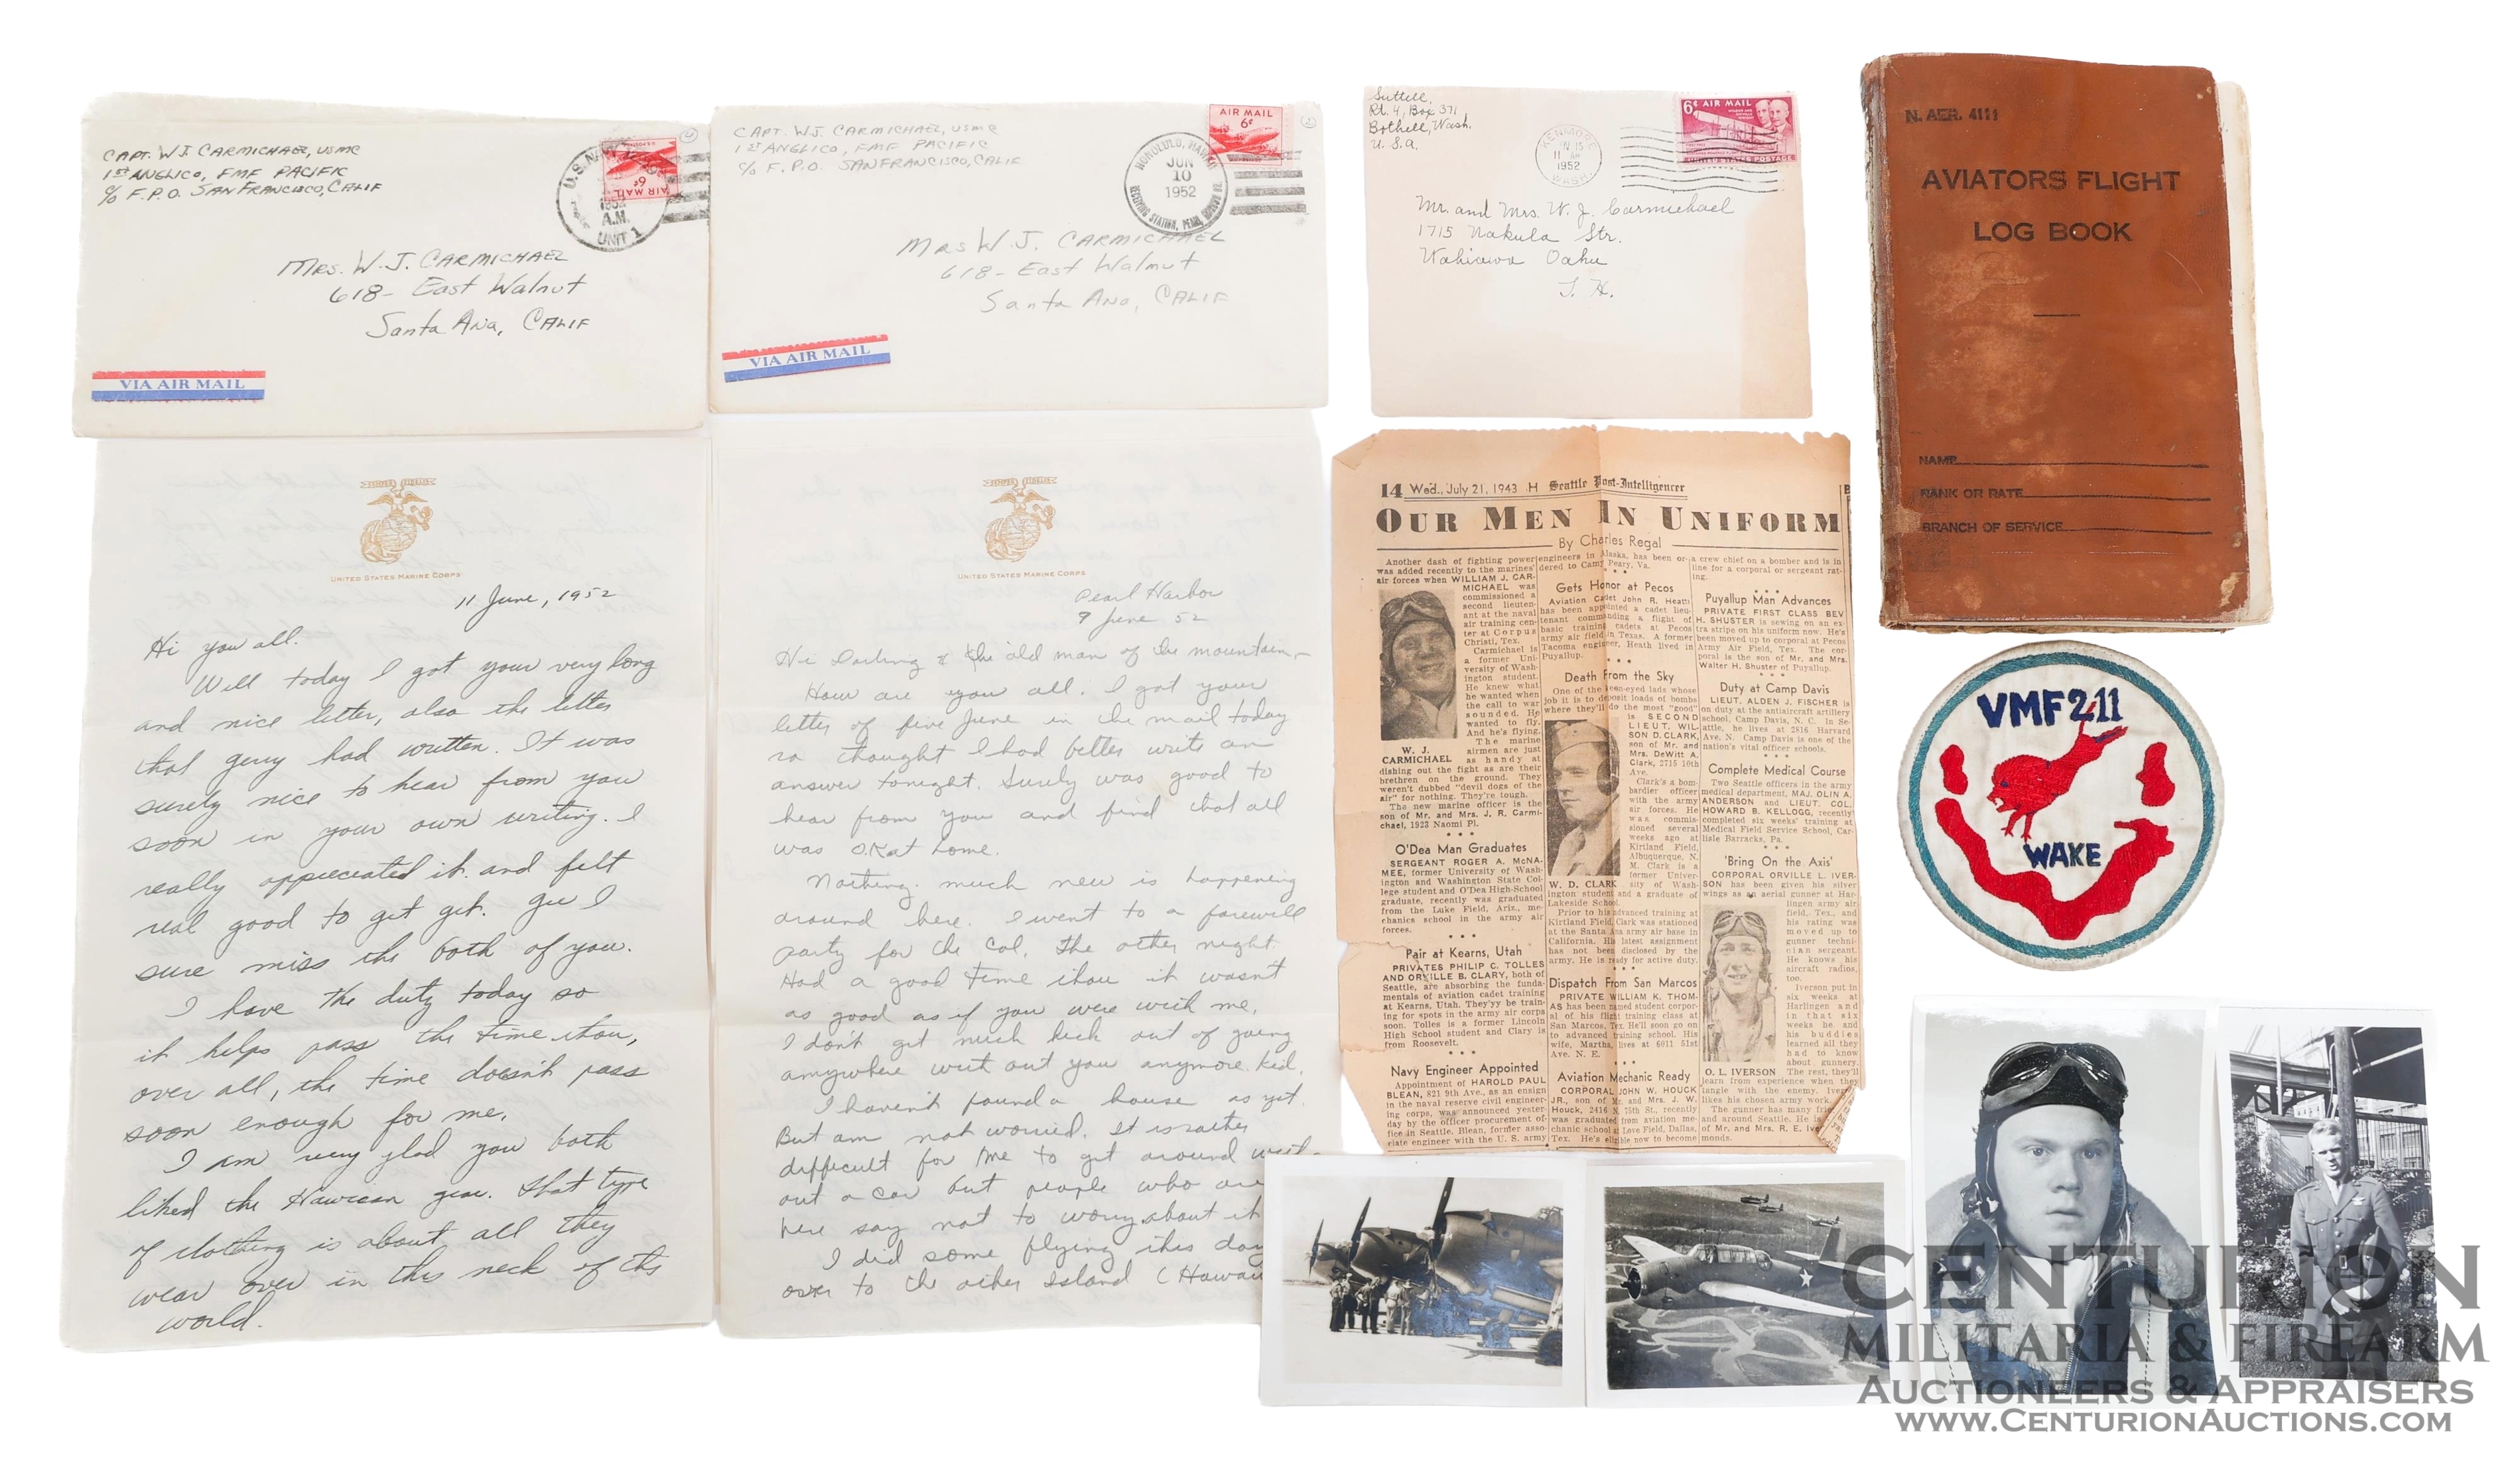 CAPT. W.J. CARMICHAEL, USMC
1ST ANGLICO, FMF PACIFIC
c/o F.P.O. SAN FRANCISCO, CALIF
MRS. W.J. CARMICHAEL
618- East Walnut
Santa Ana, CALIF
VIA AIR MAIL
AIR MAIL
6¢
U.S. NAVY
1952
A.M.
UNIT 1
CAPT. W.J. CARMICHAEL, USMC
1ST ANGLICO, FMF PACIFIC
c/o F.P.O. SAN FRANCISCO, CALIF
AIR MAIL
6¢
HONOLULU, HAWAII
JUN
10
1952
RECEIVING STATION, PEARL HARBOR BR.
MRS W.J. CARMICHAEL
618- East Walnut
Santa Ana, CALIF
VIA AIR MAIL
Suttell,
Rt. 4, Box 371
Bothell, Wash.
U.S.A.
KENMORE
15
11 AM
1952
WASH.
6¢ AIR MAIL
UNITED STATES POSTAGE
Mr. and Mrs. W. J. Carmichael
1715 Nakula Str.
Wahiawa Oahu
T. H.
N. AER. 4111
AVIATORS FLIGHT
LOG BOOK
NAME
RANK OR RATE
BRANCH OF SERVICE
SEMPER FIDELIS
UNITED STATES MARINE CORPS
11 June, 1952
Hi you all.
Well today I got your very long
and nice letter, also the letter
that gerry had written. It was
surely nice to hear from you
soon in your own writing. I
really appreciated it. and felt
real good to get get. Gee I
sure miss the both of you.
I have the duty today so
it helps pass the time thou,
over all, the time doesn't pass
soon enough for me.
I am very glad you both
liked the Hawiean gear. That type
of clothing is about all they
wear over in this neck of the
world.
SEMPER FIDELIS
UNITED STATES MARINE CORPS
Pearl Harbor
9 June 52
Hi Darling & the old man of the mountain-
How are you all. I got your
letter of five June in the mail today
so thought I had better write an
answer tonight. Surely was good to
hear from you and find that all
was O.K at home.
Nothing much new is happening
around here. I went to a farewell
party for the Col. the other night.
Had a good time thou it wasn't
as good as if you were with me.
I don't get much kick out of going
anywhere with out you anymore kid.
I haven't found a house as yet.
But am not worried. It is rather
difficult for me to get around with-
out a car but people who are
here say not to worry about it
I did some flying this day
over to the other Island (Hawaii
14 Wed., July 21, 1943 H Seattle Post-Intelligencer
OUR MEN IN UNIFORM
By Charles Regal
Another dash of fighting power
was added recently to the marines'
air forces when WILLIAM J. CAR-
MICHAEL was
commissioned a
second lieuten-
ant at the naval
air training cen-
ter at Corpus
Christi, Tex.
Carmichael is
a former Uni-
versity of Wash-
ington student.
He knew what
he wanted when
the call to war
sounded. He
wanted to fly.
And he's flying.
The marine
airmen are just
as handy at
W. J.
CARMICHAEL
dishing out the fight as are their
brethren on the ground. They
weren't dubbed "devil dogs of the
air" for nothing. They're tough.
The new marine officer is the
son of Mr. and Mrs. J. R. Carmi-
chael, 1923 Naomi Pl.
O'Dea Man Graduates
SERGEANT ROGER A. McNA-
MEE, former University of Wash-
ington and Washington State Col-
lege student and O'Dea High-School
graduate, recently was graduated
from the Luke Field, Ariz., me-
chanics school in the army air
forces.
Pair at Kearns, Utah
PRIVATES PHILIP C. TOLLES
AND ORVILLE B. CLARY, both of
Seattle, are absorbing the funda-
mentals of aviation cadet training
at Kearns, Utah. They'yy be train-
ing for spots in the army air corps
soon. Tolles is a former Lincoln
High School student and Clary is
from Roosevelt.
Navy Engineer Appointed
Appointment of HAROLD PAUL
BLEAN, 821 9th Ave., as an ensign
in the naval reserve civil engineer-
ing corps, was announced yester-
day by the officer procurement of-
fice in Seattle. Blean, former asso-
ciate engineer with the U. S. army
engineers in Alaska, has been or-
dered to Camp Peary, Va.
Gets Honor at Pecos
Aviation Cadet John R. Heath
has been appointed a cadet lieu-
tenant commanding a flight of
basic training cadets at Pecos
army air field in Texas. A former
Tacoma engineer, Heath lived in
Puyallup.
Death From the Sky
One of the keen-eyed lads whose
job it is to deposit loads of bombs
where they'll do the most "good"
is SECOND
LIEUT. WIL
SON D. CLARK,
son of Mr. and
Mrs. DeWitt A.
Clark, 2715 10th
Ave.
Clark's a bom-
bardier officer
with the army
air forces. He
was commis-
sioned several
weeks ago at
Kirtland Field,
Albuquerque, N.
M. Clark is a
former Univer-
sity of Wash-
W. D. CLARK
ington student and a graduate of
Lakeside School.
Prior to his advanced training at
Kirtland Field, Clark was stationed
at the Santa Ana army air base in
California. His latest assignment
has not been disclosed by the
army. He is ready for active duty.
Dispatch From San Marcos
PRIVATE WILLIAM K. THOM-
AS has been named student corpor-
al of his flight training class at
San Marcos, Tex. He'll soon go on
to advanced training school. His
wife, Martha, lives at 6011 51st
Ave. N. E.
Aviation Mechanic Ready
CORPORAL JOHN W. HOUCK
JR., son of Mr. and Mrs. J. W.
Houck, 2416 N. 75th St., recently
was graduated from aviation me-
chanic school at Love Field, Dallas,
Tex. He's eligible now to become
a crew chief on a bomber and is in
line for a corporal or sergeant rat-
ing.
Puyallup Man Advances
PRIVATE FIRST CLASS BEV
H. SHUSTER is sewing on an ex-
tra stripe on his uniform now. He's
been moved up to corporal at Pecos
Army Air Field, Tex. The cor-
poral is the son of Mr. and Mrs.
Walter H. Shuster of Puyallup.
Duty at Camp Davis
LIEUT. ALDEN J. FISCHER is
on duty at the antiaircraft artillery
school, Camp Davis, N. C. In Se-
attle, he lives at 2816 Harvard
Ave. N. Camp Davis is one of the
nation's vital officer schools.
Complete Medical Course
Two Seattle officers in the army
medical department, MAJ. OLIN A.
ANDERSON and LIEUT. COL.
HOWARD B. KELLOGG, recently
completed six weeks' training at
Medical Field Service School, Car-
lisle Barracks, Pa.
'Bring On the Axis'
CORPORAL ORVILLE L. IVER-
SON has been given his silver
wings as an aerial gunner at Har-
lingen army air
field, Tex., and
his rating was
moved up to
gunner techni-
cian sergeant.
He knows his
aircraft radios,
too.
Iverson put in
six weeks at
Harlingen and
in that six
weeks he and
his buddies
learned all they
had to know
about gunnery.
O. L. IVERSON
The rest, they'll
learn from experience when they
tangle with the enemy.
likes his chosen army work.
The gunner has many
and around Seattle. He is
of Mr. and Mrs. R. E.
monds.
VMF 211
WAKE
CENTURION
MILITARIA & FIREARM
AUCTIONEERS & APPRAISERS
WWW.CENTURIONAUCTIONS.COM